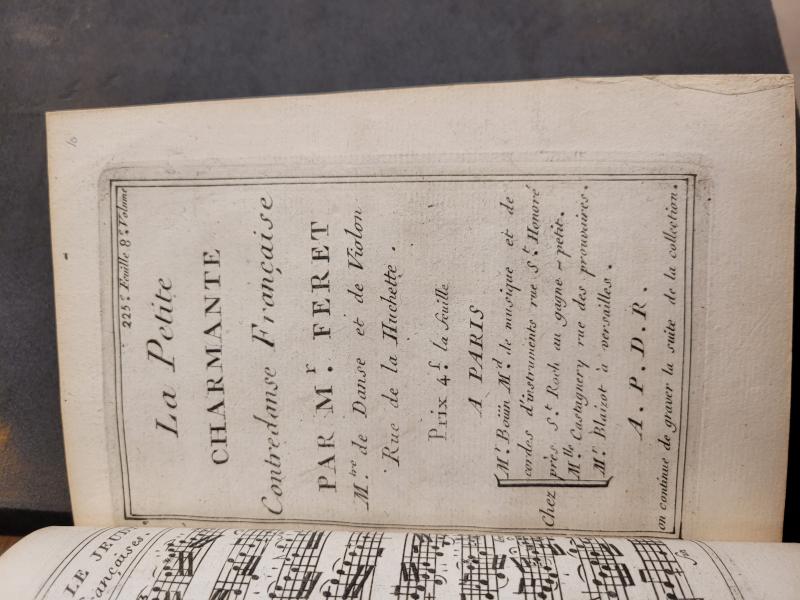 10
225.e Feuille 8.e Volume
La Petite
CHARMANTE
Contredanse Française
PAR M.r FERET
M.tre de Danse et de Violon
Rue de la Huchette.
Prix 4.ſ la feuille
A PARIS
Chez
M.r Boüin M.d de musique et de
cordes d'instruments rue S.t Honoré
près S.t Roch au gagne-petit.
M.lle Castagnery rue des prouvaires.
M.r Blaizot à versailles.
A. P. D. R.
on continue de graver la suite de la collection.
LE JEUN
ançaises.